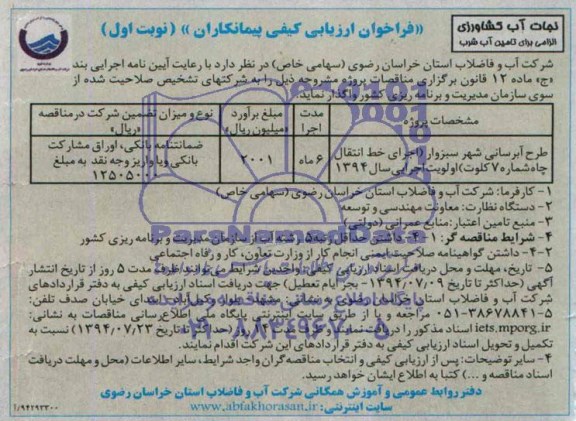 نجات آب کشاورزی
الزامی برای تامین آب شرب
«فراخوان ارزیابی کیفی پیمانکاران» (نوبت اول)
شرکت آب و فاضلاب استان خراسان رضوی (سهامی خاص) در نظر دارد با رعایت آیین نامه اجرایی بند
«ج» ماده ۱۲ قانون برگزاری مناقصات پروژه مشروحه ذیل را به شرکتهای تشخیص صلاحیت شده از
سوی سازمان مدیریت و برنامه ریزی کشور واگذار نماید.
مشخصات پروژه
مدت اجرا
مبلغ برآورد «میلیون ریال»
نوع و میزان تضمین شرکت در مناقصه «ریال»
طرح آبرسانی شهر سبزوار (اجرای خط انتقال
چاه شماره ۷ کلوت) اولویت اجرایی سال ۱۳۹۴
۶ ماه
۲۰۰۱
ضمانتنامه بانکی، اوراق مشارکت
بانکی ویا واریز وجه نقد به مبلغ
۱۲۵۰۵۰۰۰۰
۱- کارفرما: شرکت آب و فاضلاب استان خراسان رضوی (سهامی خاص)
۲- دستگاه نظارت: معاونت مهندسی و توسعه
۳- منبع تامین اعتبار: منابع عمرانی (دولتی)
۴- شرایط مناقصه گر: ۱-۴- داشتن حداقل رتبه ۵ رشته آب از سازمان مدیریت و برنامه ریزی کشور
۲-۴- داشتن گواهینامه صلاحیت ایمنی انجام کار از وزارت تعاون، کار و رفاه اجتماعی
۵- تاریخ، مهلت و محل دریافت اسناد ارزیابی کیفی: واجدین شرایط می توانند ظرف مدت ۵ روز از تاریخ انتشار
آگهی (حداکثر تا تاریخ ۱۳۹۴/۰۷/۰۹ -بجز ایام تعطیل) جهت دریافت اسناد ارزیابی کیفی به دفتر قراردادهای
شرکت آب و فاضلاب استان خراسان رضوی به نشانی: مشهد، بلوار وکیل آباد، ابتدای خیابان صدف تلفن:
۰۵۱-۳۸۶۷۸۸۴۱-۵ مراجعه و یا از طریق سایت اینترنتی پایگاه ملی اطلاع رسانی مناقصات به نشانی:
iets.mporg.ir اسناد مذکور را دریافت نمایند و ظرف مدت ۱۴ روز (حداکثر تا تاریخ ۱۳۹۴/۰۷/۲۳) نسبت به
تکمیل و تحویل اسناد ارزیابی کیفی به دفتر قراردادهای این شرکت اقدام نمایند.
۴- سایر توضیحات: پس از ارزیابی کیفی و انتخاب مناقصه گران واجد شرایط، سایر اطلاعات (محل و مهلت دریافت
اسناد مناقصه و ...) کتبا به اطلاع ایشان خواهد رسید.
دفتر روابط عمومی و آموزش همگانی شرکت آب و فاضلاب استان خراسان رضوی
سایت اینترنتی: www.abfakhorasan.ir
۹۴۲۹۳۳۰۰/آ
ParsNamadData
۰۲۱-۸۸۳۴۹۶۷۰-۵